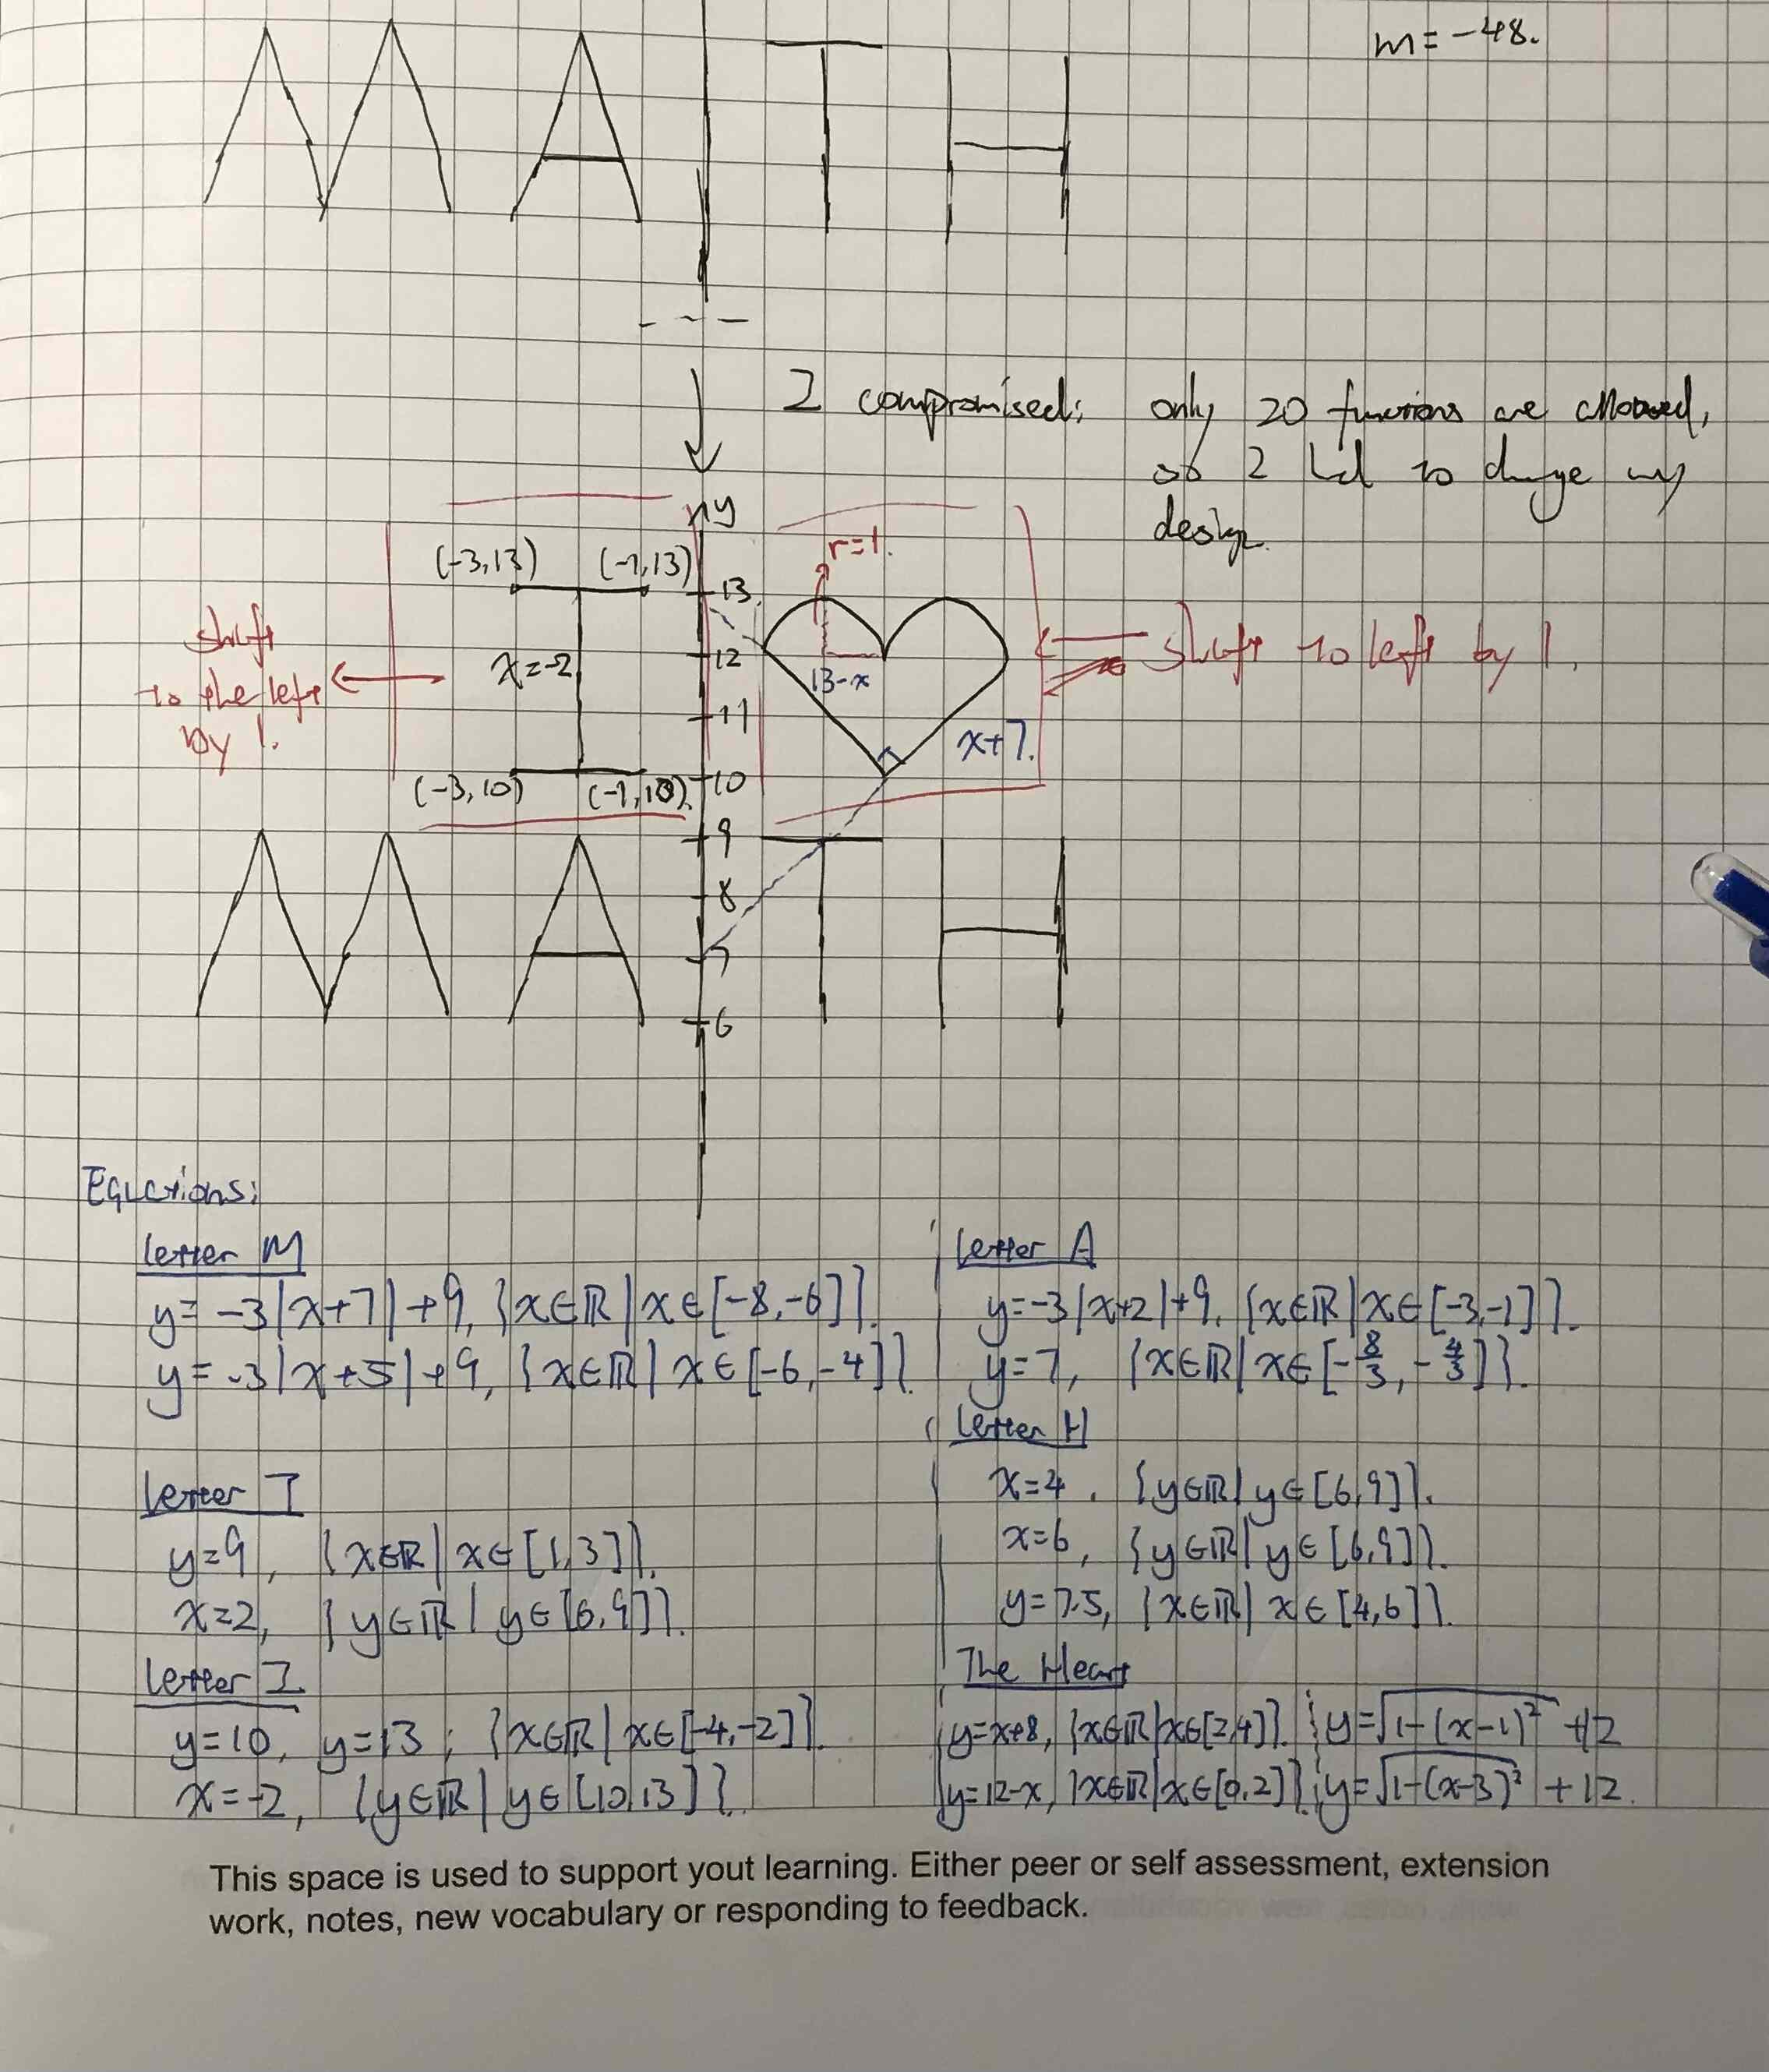 m = -48.
M A T H
I compromised: only 20 functions are allowed,
so I had to change my
design.
y
r=1.
(-3,13) (-1,13)
13
shift
to the left
by 1.
x=-2
12
13-x
shift to left by 1.
11
x+7.
(-3,10) (-1,10)
10
9
8
7
6
M A T H
Equations:
Letter M
y = -3|x+7|+9, {x∈ℝ|x∈[-8,-6]}.
y = -3|x+5|+9, {x∈ℝ|x∈[-6,-4]}.
Letter A
y=-3|x+2|+9, {x∈ℝ|x∈[-3,-1]}.
y=7, {x∈ℝ|x∈[-8/3, -4/3]}.
Letter T
y=9, {x∈ℝ|x∈[1,3]}.
x=2, {y∈ℝ|y∈[6,9]}.
Letter H
x=4, {y∈ℝ|y∈[6,9]}.
x=6, {y∈ℝ|y∈[6,9]}.
y=7.5, {x∈ℝ|x∈[4,6]}.
Letter I
y=10, y=13; {x∈ℝ|x∈[-4,-2]}.
x=-2, {y∈ℝ|y∈[10,13]}.
The Heart
y=x+8, {x∈ℝ|x∈[2,4]}. y=√(1-(x-1)²) +12
y=12-x, {x∈ℝ|x∈[0,2]}. y=√(1-(x-3)²) +12.
This space is used to support yout learning. Either peer or self assessment, extension
work, notes, new vocabulary or responding to feedback.